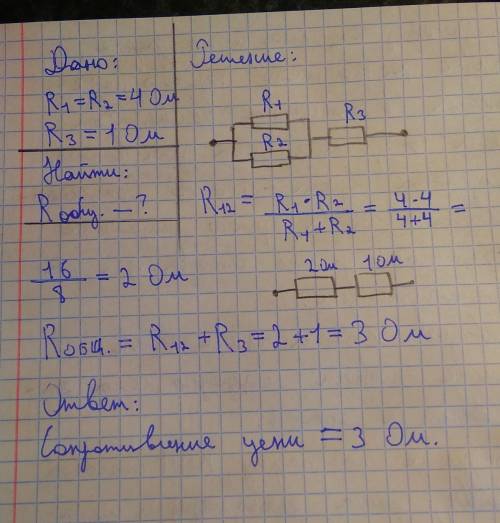 Дано:
R1=R2=4 Ом
R3=1 Ом
Найти:
Rобщ. —?
Решение:
R1
R2
R3
R12 = R1·R2 / R1+R2 = 4·4 / 4+4 =
16 / 8 = 2 Ом
2Ом 1Ом
Rобщ. = R12 + R3 = 2+1 = 3 Ом
Ответ:
Сопротивление цепи = 3 Ом.